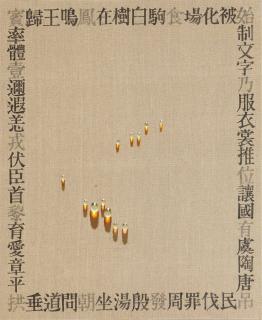 始制文字乃服衣裳推位讓國有虞陶唐吊
民伐罪周發殷湯坐朝問道垂拱
平章愛育黎首臣伏戎羌遐邇壹體率賓
歸王鳴鳳在樹白駒食場化被